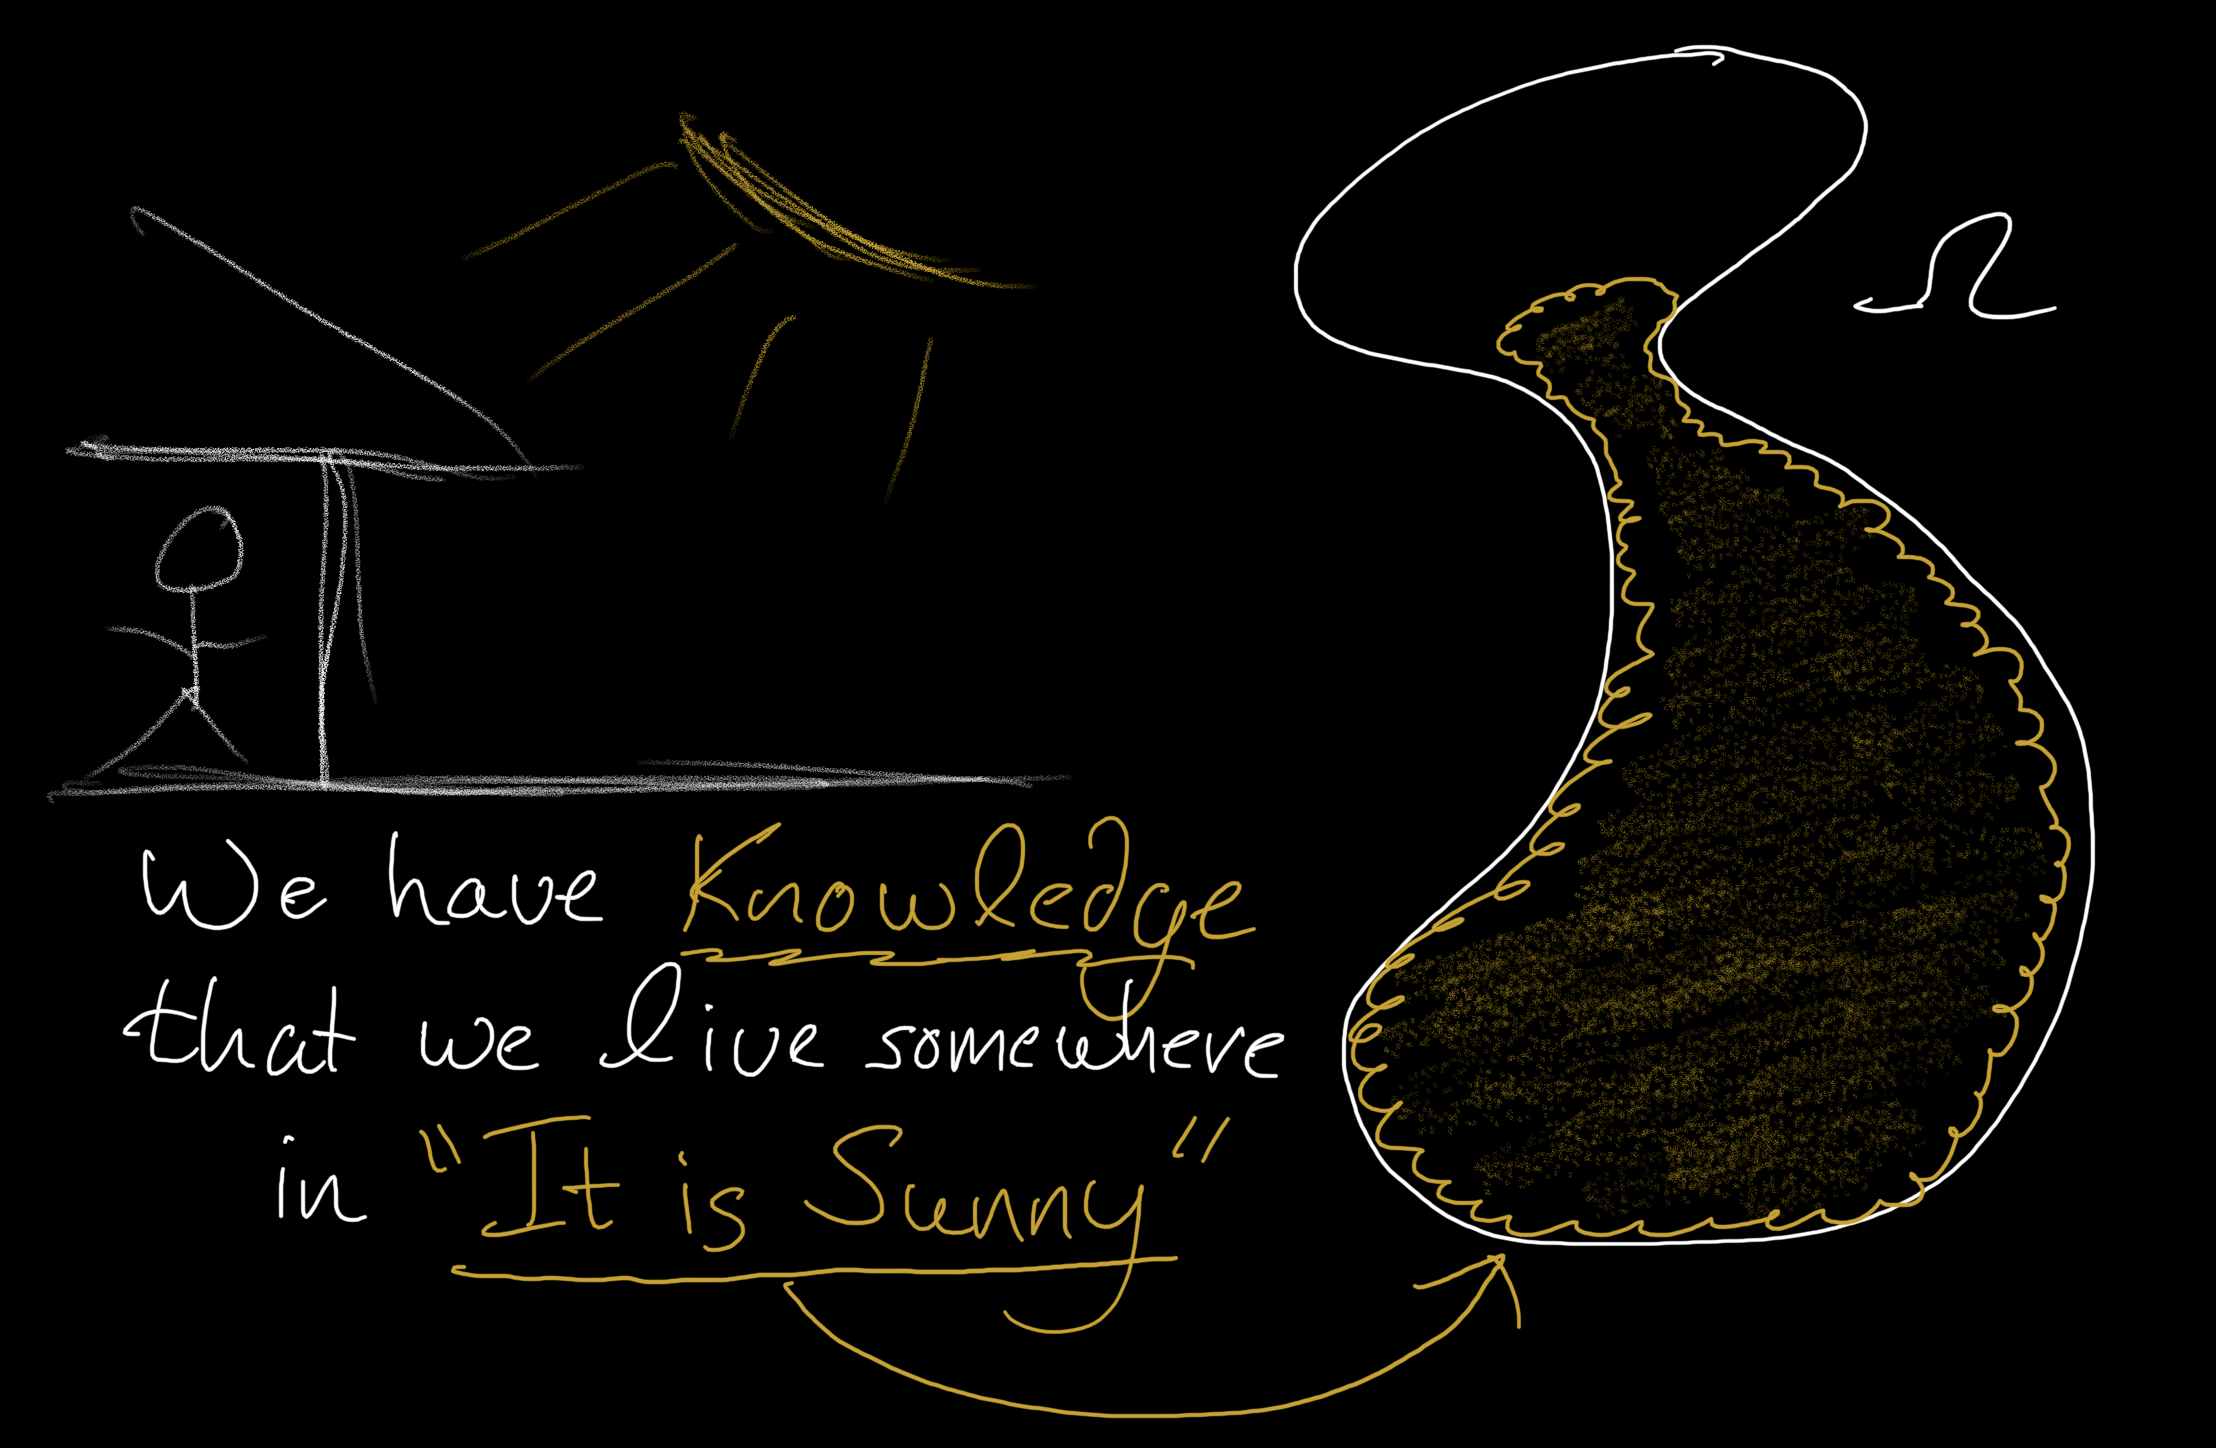 We have Knowledge
that we live somewhere
in "It is Sunny"
Ω